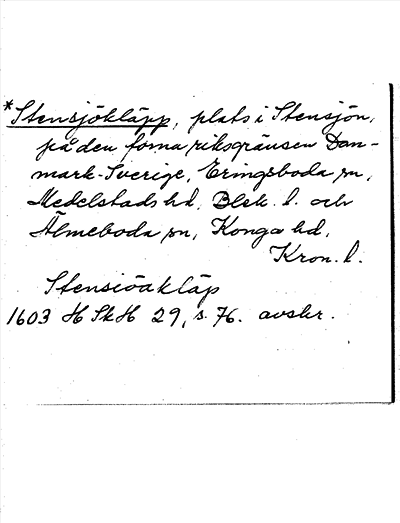 *Stensjökläpp, plats i Stensjön,
på den forna riksgränsen Dan-
mark-Sverige, Eringsboda sn,
Medelstads hd, Blek. l. och
Älmeboda sn, Konga hd,
Kron. l.
Stensiöakläp
1603 H Sk H 29, s. 76. avskr.